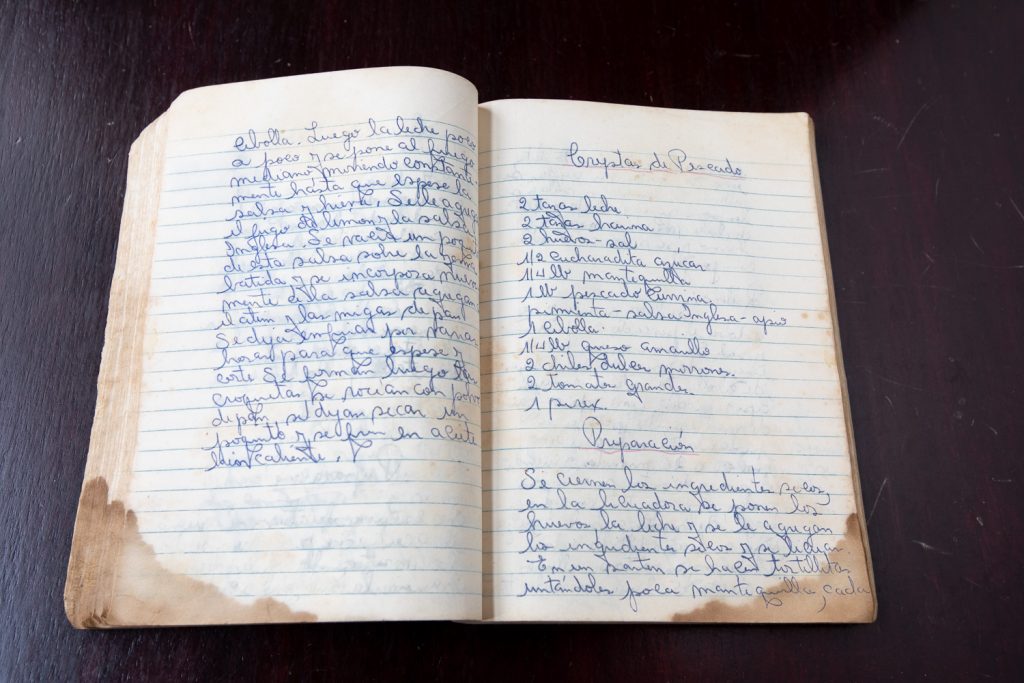 cebolla. Luego la leche poco
a poco y se pone al fuego
mediano moviendo constante-
mente hasta que espese la
salsa y hierva, Se le agrega
el jugo de limon y la salsa
Inglesa. Se vacía un poqui
de esta salsa sobre la yema
batida y se incorpora nueva
mente a la salsa agregan
el atún y las migas de pan
Se deja enfriar por varias
horas para que espese y
corte Se forman luego las
croquetas se rocían con polvo
de pan, se dejan secar un
poquito y se frien en aceite
bien caliente.
Creystas de Pescado
2 tazas leche
2 tazas harina
2 huevos - sal
1/2 cucharadita azúcar
1/4 lb mantequilla
1 lb pescado
pimienta - salsa Inglesa - apio
1 cebolla.
1/4 lb queso amarillo
2 chiles dulces morrones.
2 tomates grandes.
1 pirex.
Preparación
Se ciernen los ingredientes secos,
en la licuadora se ponen los
huevos la leche y se le agregan
los ingredientes secos y se licúan.
En un sartén se hacen tortillitas
untándoles poca mantequilla, cada